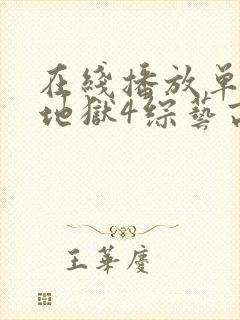 在綫播放單
地獄4綜藝
王華慶